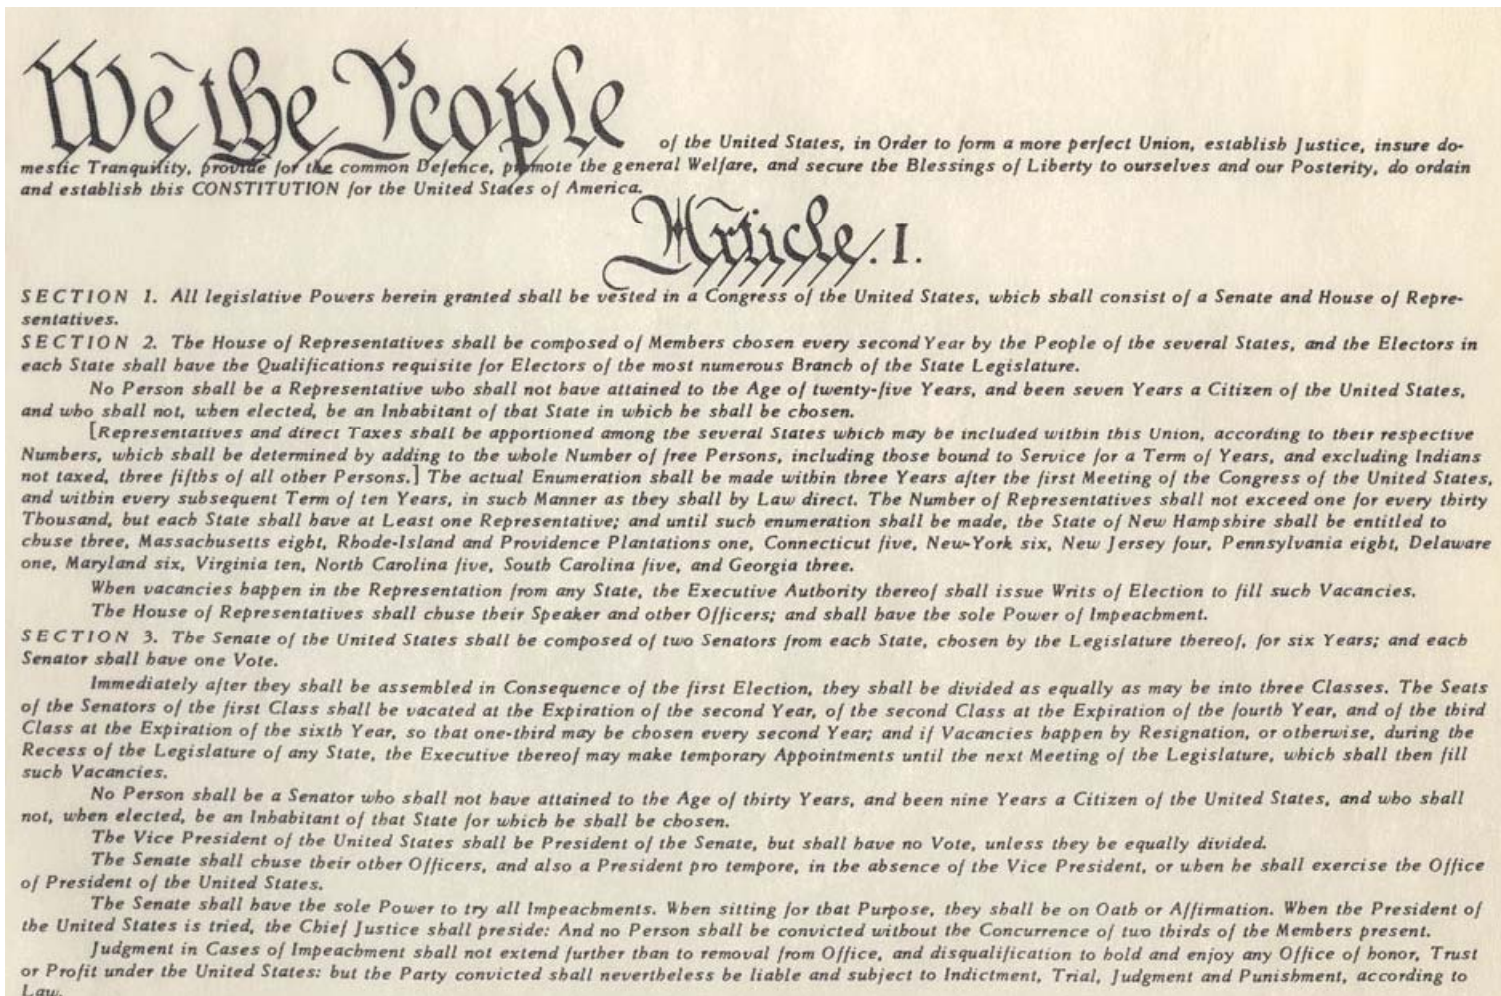 We the People
of the United States, in Order to form a more perfect Union, establish Justice, insure do-
mestic Tranquility, provide for the common Defence, promote the general Welfare, and secure the Blessings of Liberty to ourselves and our Posterity, do ordain
and establish this CONSTITUTION for the United States of America.
Article. I.
SECTION 1. All legislative Powers herein granted shall be vested in a Congress of the United States, which shall consist of a Senate and House of Repre-
sentatives.
SECTION 2. The House of Representatives shall be composed of Members chosen every second Year by the People of the several States, and the Electors in
each State shall have the Qualifications requisite for Electors of the most numerous Branch of the State Legislature.
No Person shall be a Representative who shall not have attained to the Age of twenty-five Years, and been seven Years a Citizen of the United States,
and who shall not, when elected, be an Inhabitant of that State in which he shall be chosen.
[Representatives and direct Taxes shall be apportioned among the several States which may be included within this Union, according to their respective
Numbers, which shall be determined by adding to the whole Number of free Persons, including those bound to Service for a Term of Years, and excluding Indians
not taxed, three fifths of all other Persons.] The actual Enumeration shall be made within three Years after the first Meeting of the Congress of the United States,
and within every subsequent Term of ten Years, in such Manner as they shall by Law direct. The Number of Representatives shall not exceed one for every thirty
Thousand, but each State shall have at Least one Representative; and until such enumeration shall be made, the State of New Hampshire shall be entitled to
chuse three, Massachusetts eight, Rhode-Island and Providence Plantations one, Connecticut five, New-York six, New Jersey four, Pennsylvania eight, Delaware
one, Maryland six, Virginia ten, North Carolina five, South Carolina five, and Georgia three.
When vacancies happen in the Representation from any State, the Executive Authority thereof shall issue Writs of Election to fill such Vacancies.
The House of Representatives shall chuse their Speaker and other Officers; and shall have the sole Power of Impeachment.
SECTION 3. The Senate of the United States shall be composed of two Senators from each State, chosen by the Legislature thereof, for six Years; and each
Senator shall have one Vote.
Immediately after they shall be assembled in Consequence of the first Election, they shall be divided as equally as may be into three Classes. The Seats
of the Senators of the first Class shall be vacated at the Expiration of the second Year, of the second Class at the Expiration of the fourth Year, and of the third
Class at the Expiration of the sixth Year, so that one-third may be chosen every second Year; and if Vacancies happen by Resignation, or otherwise, during the
Recess of the Legislature of any State, the Executive thereof may make temporary Appointments until the next Meeting of the Legislature, which shall then fill
such Vacancies.
No Person shall be a Senator who shall not have attained to the Age of thirty Years, and been nine Years a Citizen of the United States, and who shall
not, when elected, be an Inhabitant of that State for which he shall be chosen.
The Vice President of the United States shall be President of the Senate, but shall have no Vote, unless they be equally divided.
The Senate shall chuse their other Officers, and also a President pro tempore, in the absence of the Vice President, or when he shall exercise the Office
of President of the United States.
The Senate shall have the sole Power to try all Impeachments. When sitting for that Purpose, they shall be on Oath or Affirmation. When the President of
the United States is tried, the Chief Justice shall preside: And no Person shall be convicted without the Concurrence of two thirds of the Members present.
Judgment in Cases of Impeachment shall not extend further than to removal from Office, and disqualification to hold and enjoy any Office of honor, Trust
or Profit under the United States: but the Party convicted shall nevertheless be liable and subject to Indictment, Trial, Judgment and Punishment, according to
Law.